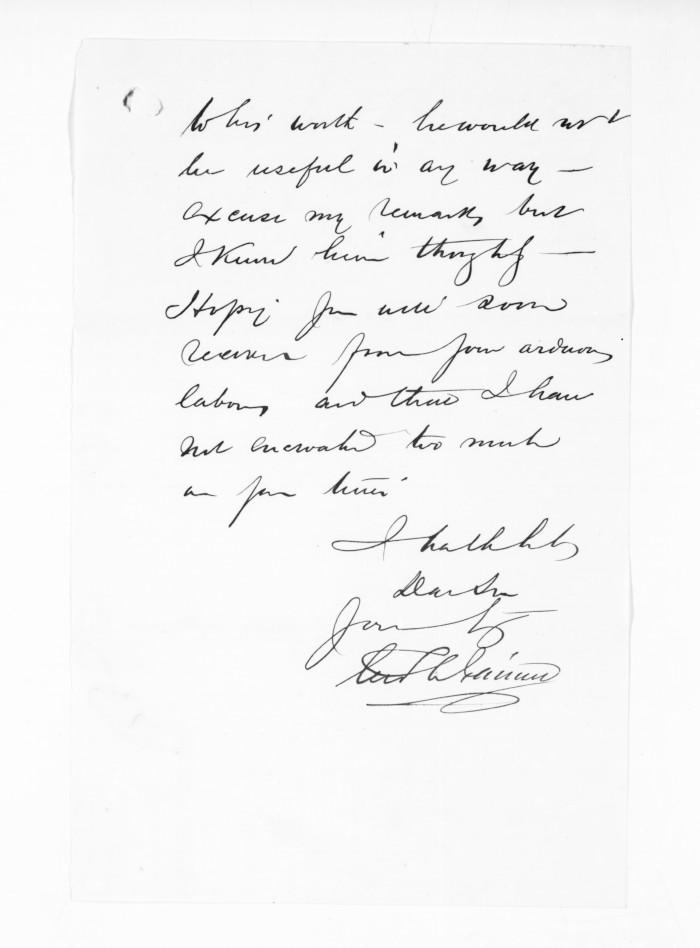 to his worth - he would not
be useful in any way -
excuse my remarks, but
I know him thoroughly -
Hoping you will soon
recover from your arduous
labours, and that I have
not encroached too much
on your time
I shall be
Dear Sir
Yours truly